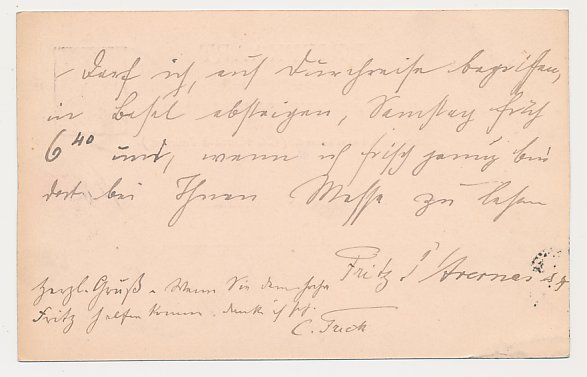 Darf ich, auf Durchreise begriffen,
in Basel absteigen, Samstag früh
6 40 und, wenn ich frisch genug bin
dort bei Ihnen Messe zu lesen
Fritz d'Avernas S.J.
Herzl. Gruß. Wenn Sie dem
Fritz helfen können, danke ich
C. Frick